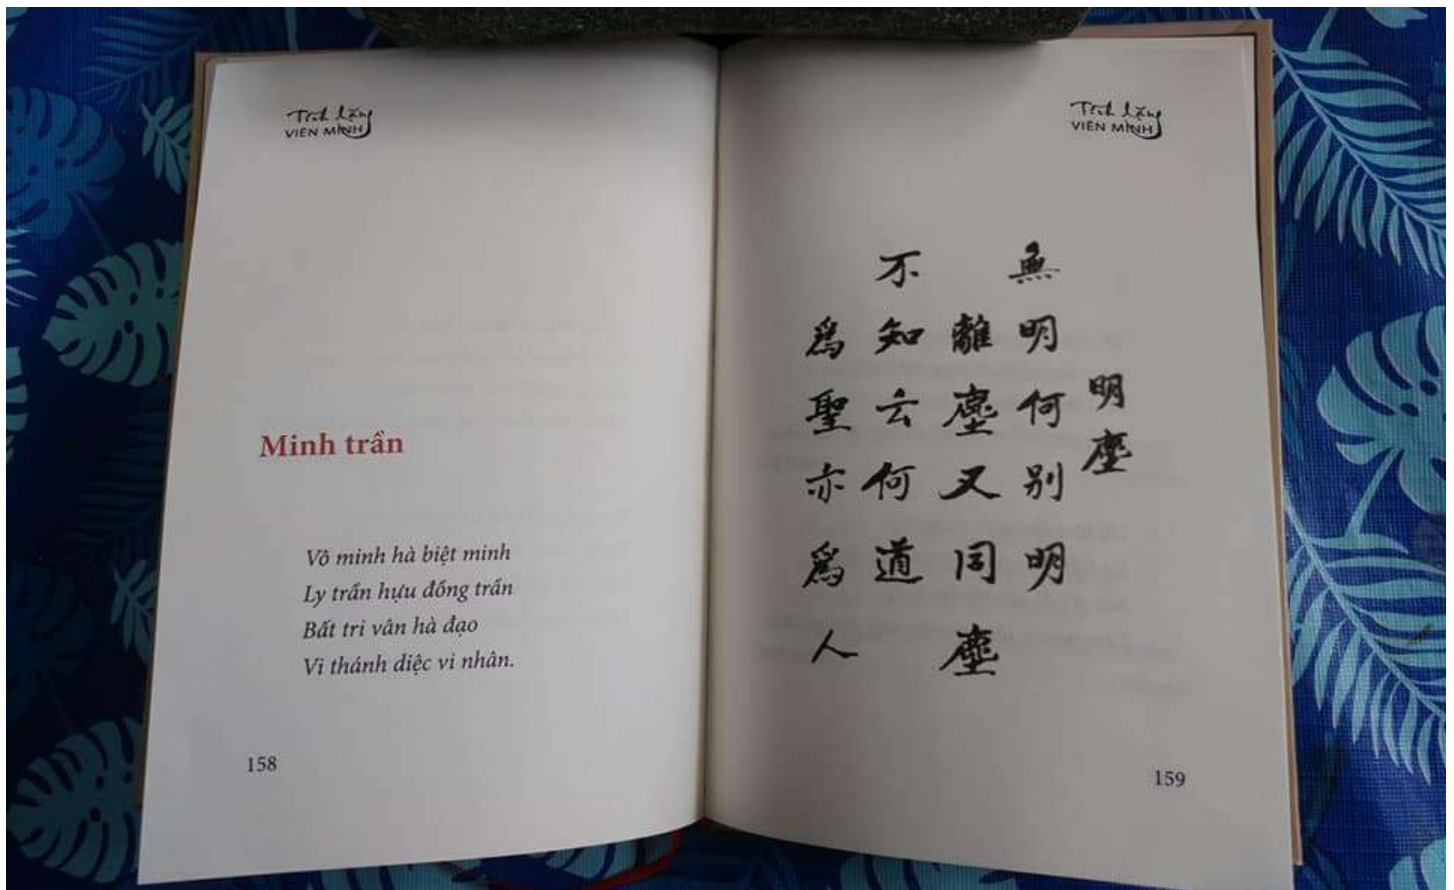 Tĩnh lặng
VIÊN MINH
Minh trần
Vô minh hà biệt minh
Ly trần hựu đồng trần
Bất tri vân hà đạo
Vi thánh diệc vi nhân.
158
Tĩnh lặng
VIÊN MINH
明塵
無明何別明
離塵又同塵
不知云何道
爲聖亦爲人
159